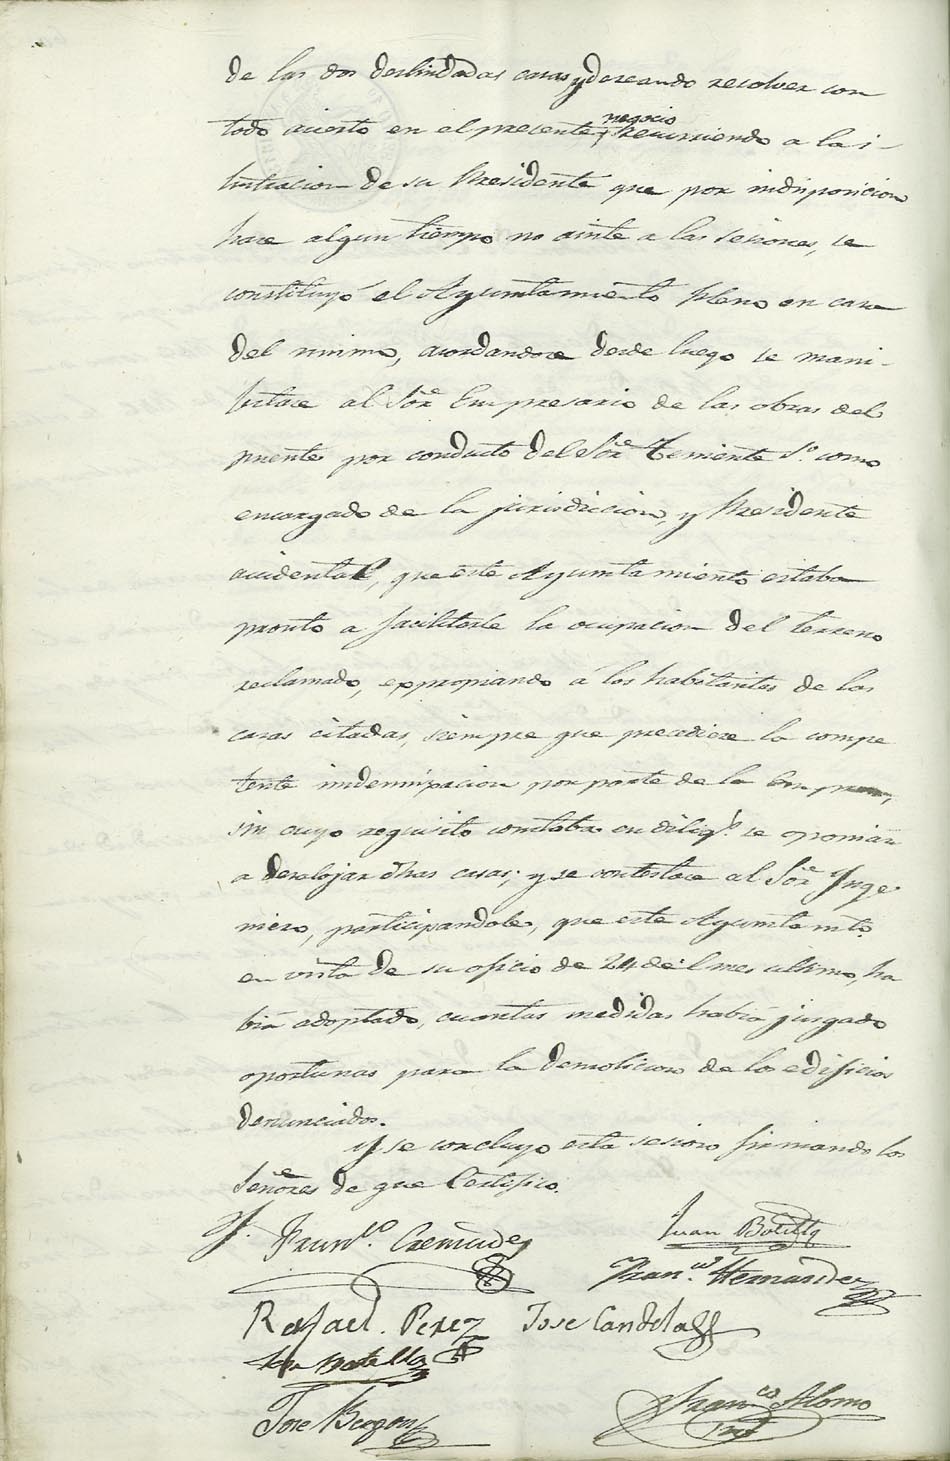 de las dos deslindadas casas y deseando resolver con
todo acierto en el presente negocio, recurriendo a la i-
lustracion de su Presidente que por indisposicion
hace algun tiempo no asiste a las sesiones, se
constituyó el Ayuntamiento pleno en casa
del mismo, acordandose desde luego se mani-
festase al Sor. Empresario de las obras del
puente por conducto del Sor. Teniente 1o. como
encargado de la jurisdiccion, y Presidente
accidental, que este Ayuntamiento estaba
pronto a facilitarle la ocupacion del terreno
reclamado, expropiando á los habitantes de las
casas citadas, siempre que precediese la compe
tente indemnizacion por parte de la Empresa,
sin cuyo requisito constaba en diliga. se oponian
a desalojar dhas casas; y se contestase al Sor. Inge
niero, participandole, que este Ayuntamto.
en vista de su oficio de 24 del mes ultimo, ha
bia adoptado, cuantas medidas habia juzgado
oportunas para la demolicion de los edificios
denunciados.
Y se concluyo esta sesion firmando los
Señores de que Certifico.
Franco. Cremades
Juan Botella
Franco. Hernandez
Rafael Perez
Jose Candela
Botella
Jose
Franco. Alonso